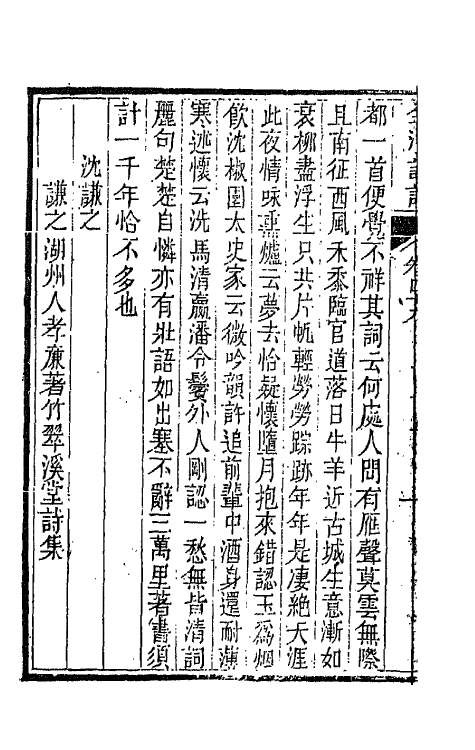 都一首便覺不祥其詞云何處人間有雁聲莫雲無際
且南征西風禾黍臨官道落日牛羊近古城生意漸如
衰柳盡浮生只共片帆輕勞勞踪跡年年是凄絶天涯
此夜情咏熏爐云夢去恰疑懷墮月抱來錯認玉爲烟
飲沈椒園太史家云微吟韻許追前輩中酒身還耐薄
寒述懷云洗馬清羸潘令鬢外人剛認一愁無皆清詞
麗句楚楚自憐亦有壯語如出塞不辭三萬里著書須
計一千年恰不多也
沈謙之
謙之湖州人孝廉著竹翠溪堂詩集